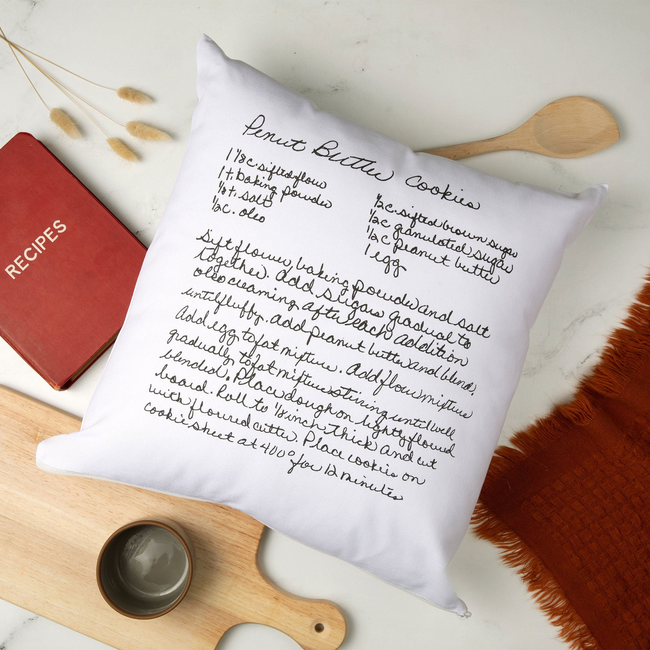 RECIPES
Penut Butter Cookies
1 1/8 c. sifted flow
1 t baking powder
1/8 t. salt
1/2 c. oleo
1/2 c. sifted brown sugar
1/2 c granulated sugar
1/2 c peanut butter
1 egg
Sift flower, baking powder and salt
together. add sugar gradual to
oleo creaming after each addition
until fluffy. add peanut butter and blend.
Add egg to fat mixture. Add flow mixture
gradually to fat mixture stirring until well
blended. Place dough on lightly floured
board. Roll to 1/8 inch Thick and cut
with floured cutter. Place cookies on
cookie sheet at 400° for 12 minutes